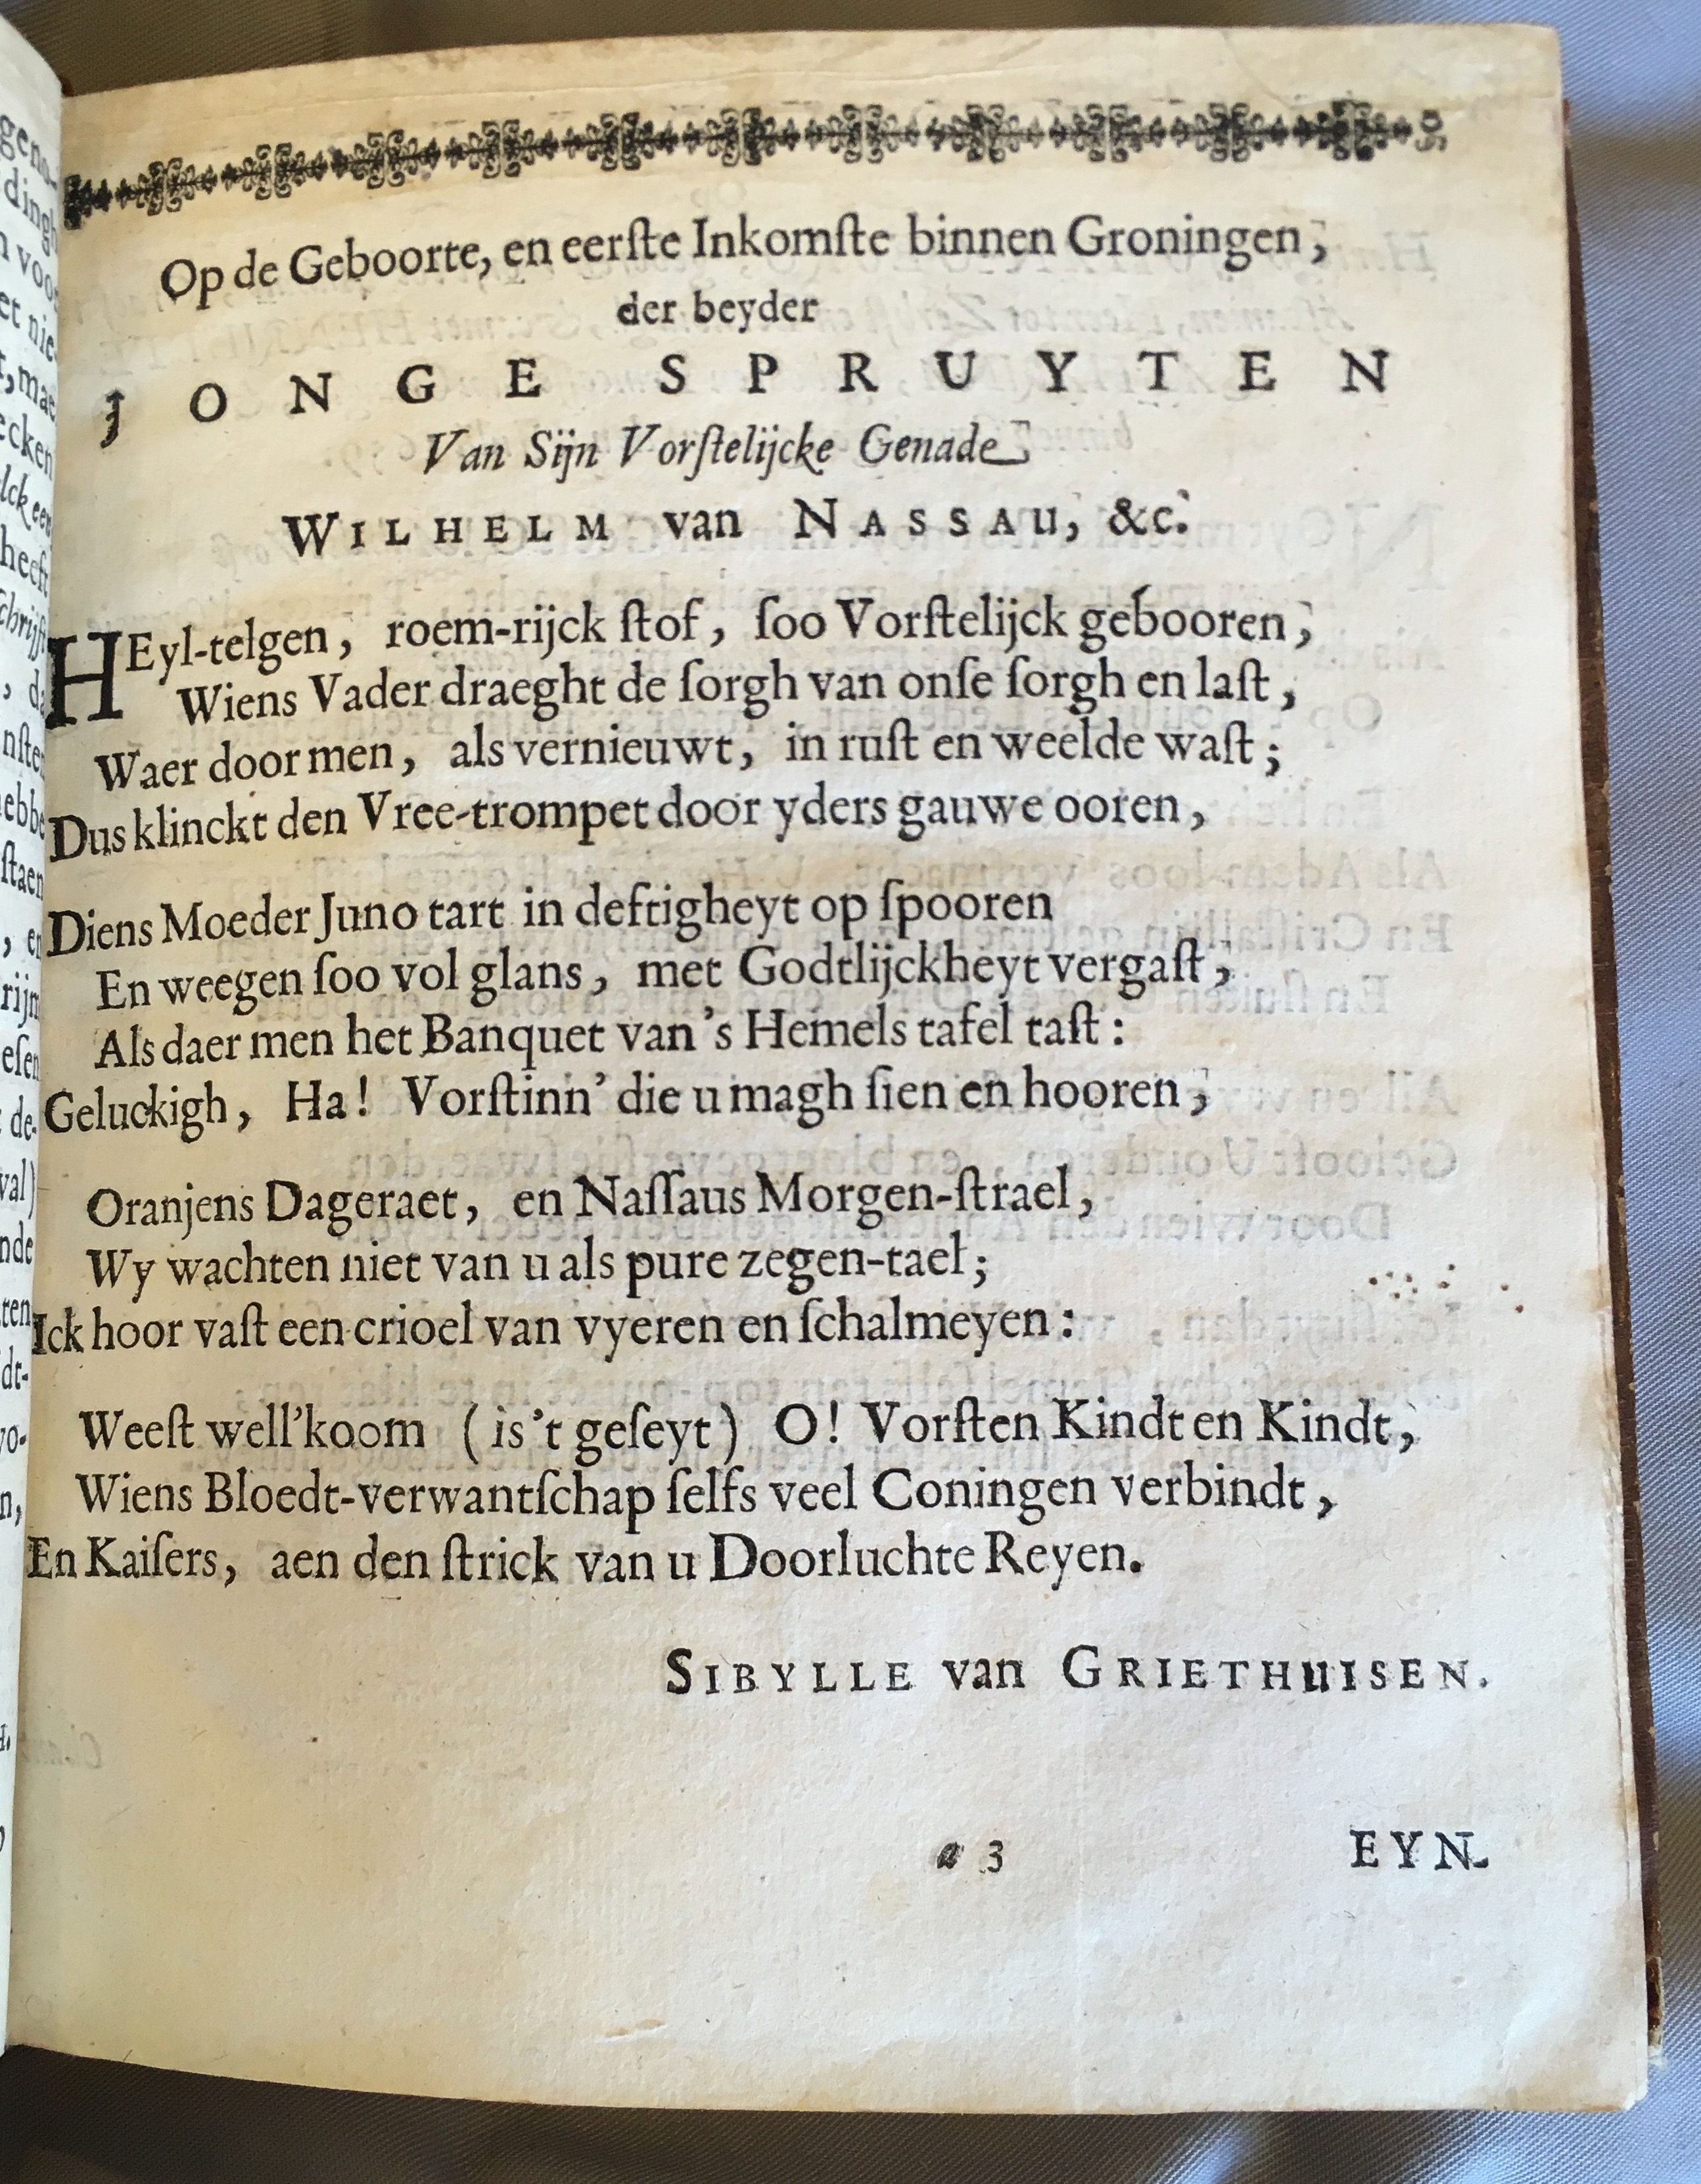 Op de Geboorte, en eerſte Inkomſte binnen Groningen,
der beyder
JONGE SPRUYTEN
Van Sijn Vorſtelijcke Genade
WILHELM van NASSAU, &c.
HEyl-telgen, roem-rijck ſtof, ſoo Vorſtelijck gebooren,
Wiens Vader draeght de ſorgh van onſe ſorgh en laſt,
Waer door men, als vernieuwt, in ruſt en weelde waſt;
Dus klinckt den Vree-trompet door yders gauwe ooren,
Diens Moeder Juno tart in deftigheyt op ſpooren
En weegen ſoo vol glans, met Godtlijckheyt vergaſt,
Als daer men het Banquet van 's Hemels tafel taſt:
Geluckigh, Ha! Vorſtinn' die u magh ſien en hooren,
Oranjens Dageraet, en Naſſaus Morgen-ſtrael,
Wy wachten niet van u als pure zegen-tael;
Ick hoor vaſt een crioel van vyeren en ſchalmeyen:
Weeſt well'koom (is 't geſeyt) O! Vorſten Kindt en Kindt,
Wiens Bloedt-verwantſchap ſelfs veel Coningen verbindt,
En Kaiſers, aen den ſtrick van u Doorluchte Reyen.
SIBYLLE van GRIETHUISEN.
a 3 EYN.